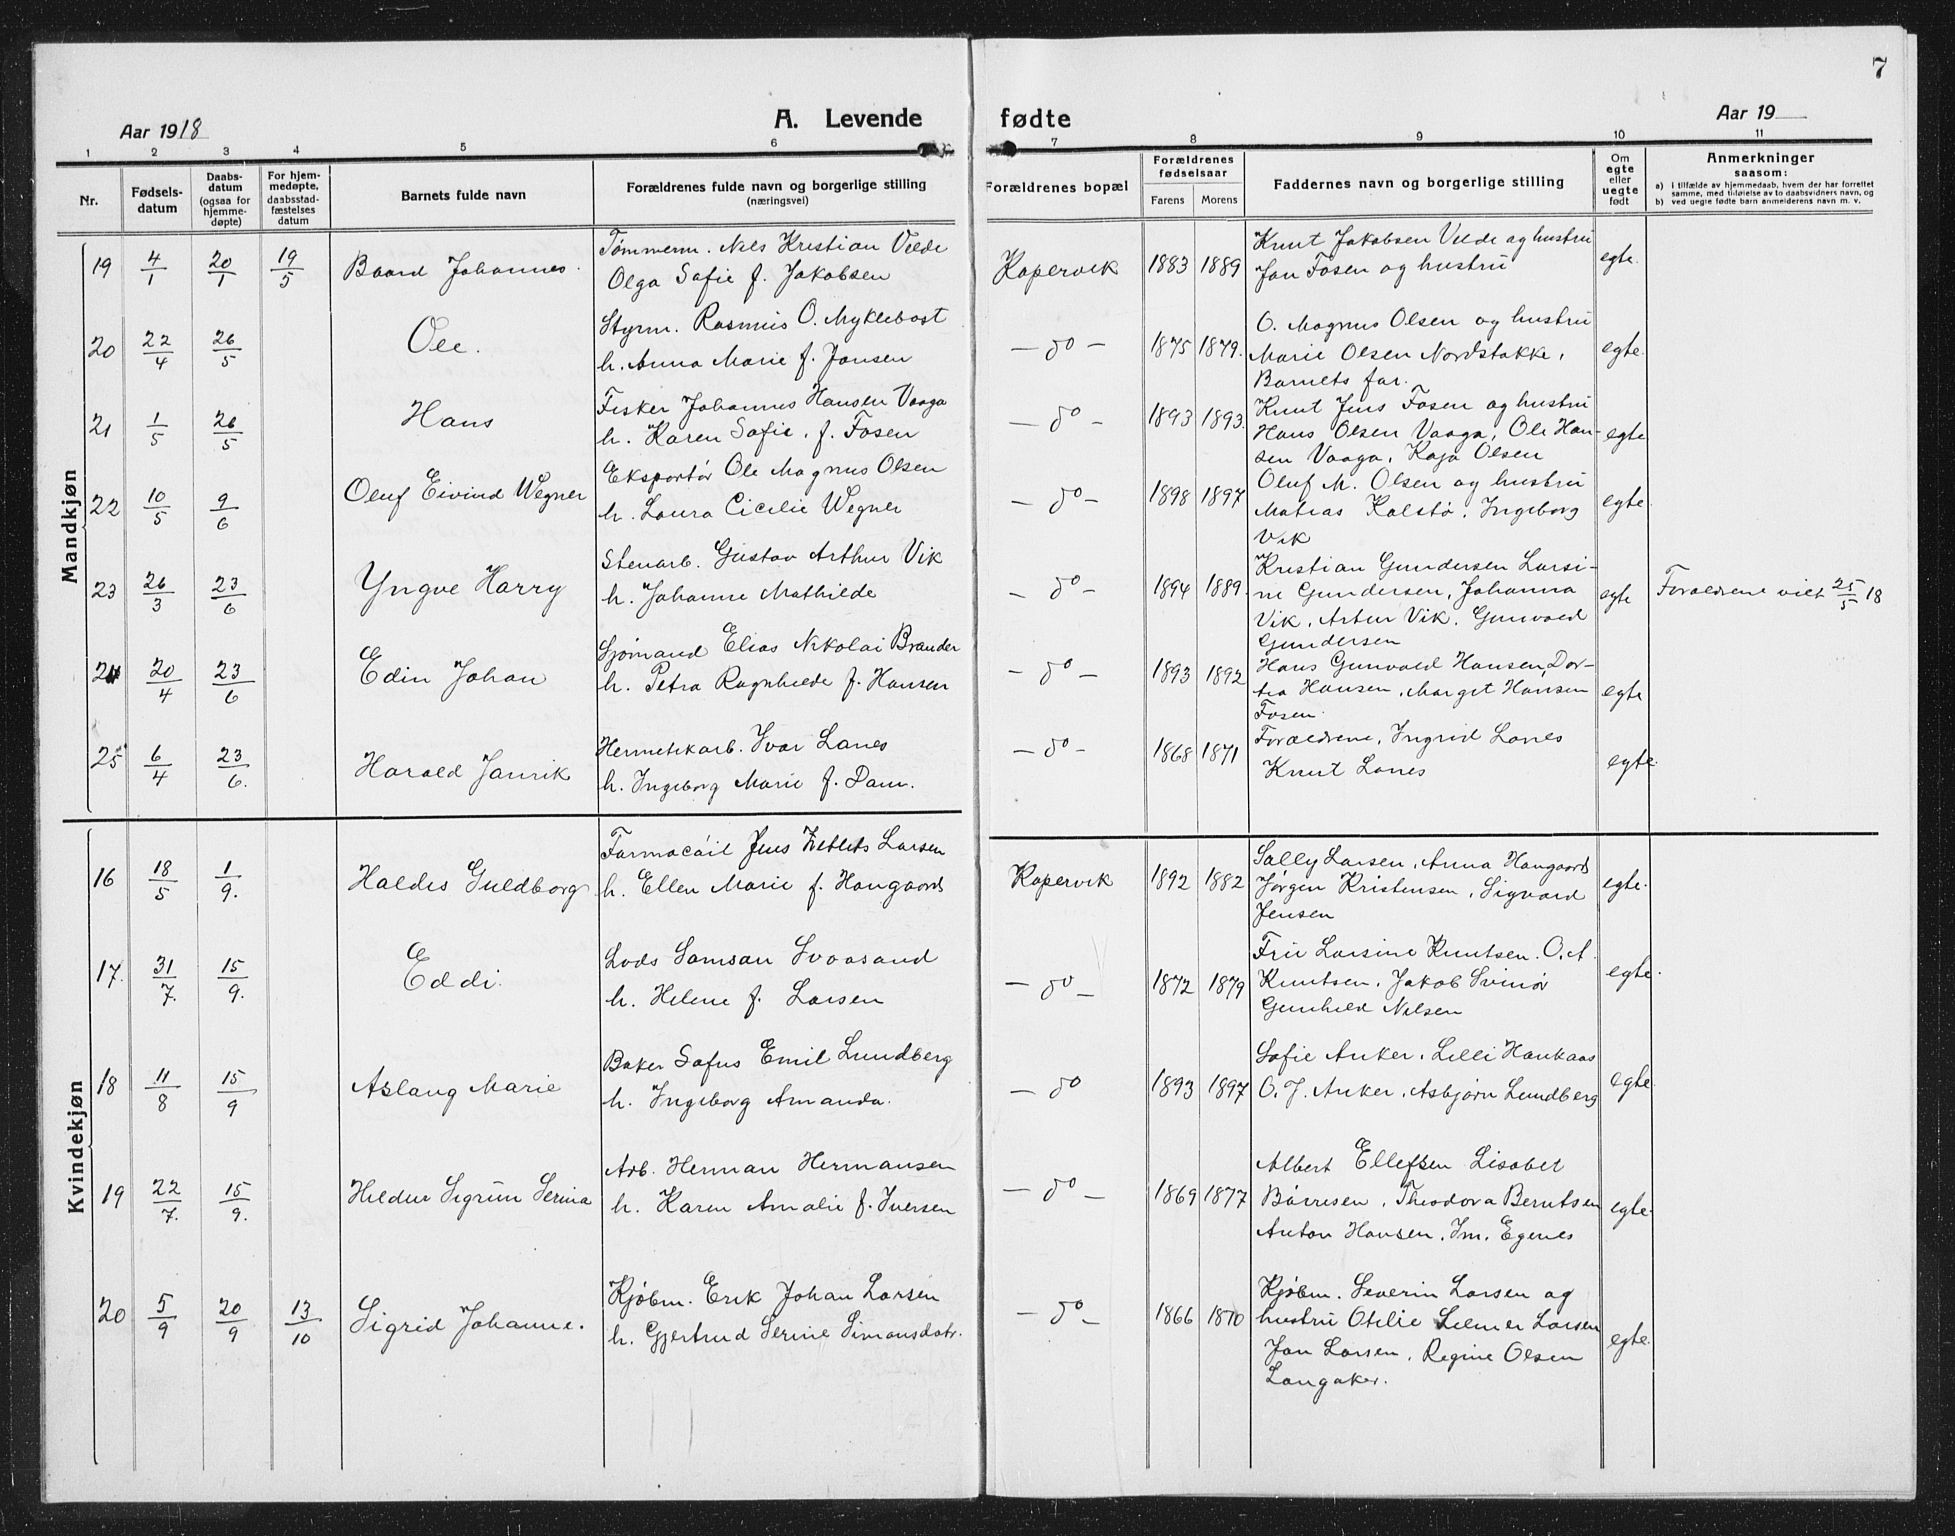 7
Aar 1918
A. Levende fødte
Aar 19
1 2 3 4 5 6 7 8 9 10 11
Nr.
Fødsels-
datum
Daabs-
datum
(ogsaa for
hjemme-
døpte)
For hjem-
medøpte,
daabsstad-
fæstelses
datum
Barnets fulde navn
Forældrenes fulde navn og borgerlige stilling
(næringsvei)
Forældrenes bopæl
Forældrenes
fødselsaar
Farens Morens
Faddernes navn og borgerlige stilling
Om
egte
eller
uegte
født
Anmerkninger
saasom:
a) i tilfælde av hjemmedaab, hvem der har forrettet
samme, med tilføielse av to daabsvidners navn, og
b) ved uegte fødte barn anmelderens navn m. v.
Mandkjøn
19 4/1 20/1 19/5 Baard Johannes.
Tømmerm. Nils Kristian Velde
Olga Sofie f. Jakobsen
Kopervik 1883 1889
Knut Jakobsen Velde og hustru
Jan Fosen og hustru
egte.
20 22/4 26/5 Ole.
Styrm. Rasmus O. Myklebost
h. Anna Marie f. Jansen
— do — 1875 1879.
O. Magnus Olsen og hustru
Marie Olsen Nordstokke,
Barnets far.
egte.
21 1/5 26/5 Hans
Fisker Johannes Hansen Vaaga
h. Karen Sofie, f. Fosen
— do — 1893 1893.
Knut Jens Fosen og hustru
Hans Olsen Vaaga, Ole Han-
sen Vaaga, Kaja Olsen
egte
22 10/5 9/6 Oluf Eivind Wegner
Eksportør Ole Magnus Olsen
h. Laura Cicilie Wegner
— do — 1898 1897
Oluf M. Olsen og hustru
Matias Kalstø, Ingeborg
Vik
egte.
23 26/3 23/6 Yngve Harry
Stenarb. Gustav Arthur Vik
h. Johanne Mathilde
— do — 1894 1889.
Kristian Gundersen Larsi-
ne Gundersen, Johanna
Vik, Artur Vik, Gunvald
Gundersen
egte
Forældrene viet 25/5 18
24 20/4 23/6 Edin Johan
Sjømand Elias Nikolai Brander
h. Petra Ragnhilde f. Hansen
— do — 1893 1892
Hans Gunvald Hansen, Dor-
tea Hansen, Margit Hansen
Fosen.
egte
25 6/4 23/6. Harald Janrik
Hermetikarb. Ivar Lanes
h. Ingeborg Marie f. Dam.
— do — 1868 1871
Forældrene, Ingrid Lanes
Knut Lanes
egte.
Kvindekjøn
16 18/5 1/9. Haldis Guldborg
Farmacøit Jens Zetlets Larsen
h. Ellen Marie f. Hangaard
Kopervik 1892 1882
Sally Larsen, Anna Hangaard
Jørgen Kristensen, Sigvard
Jensen
egte.
17. 31/7. 15/9. Eddi.
Lods Samson Svaasand
h. Helene f. Larsen
— do — 1872 1879
Fru Larsine Knutsen. O. A.
Knutsen, Jakob Svinør
Gunhild Nilsen
egte.
18 11/8 15/9 Aslaug Marie
Baker Sofus Emil Lundberg
h. Ingeborg Amanda.
— do 1893 1897
Sofie Anker, Lilli Haukaas
O. J. Anker, Asbjørn Lundberg
egte.
19 22/7. 15/9. Hildur Sigrun Serina
Arb. Herman Hermansen
h. Karen Amalie f. Iversen
— do — 1869 1877
Albert Ellefsen Lisabet
Børresen, Theodora Berntsen
Anton Hansen, Im. Egenes
egte.
20 5/9 20/9 13/10 Sigrid Johanne.
Kjøbm. Erik Johan Larsen
h. Gjertrud Serine Simonsdatr.
— do — 1866 1870
Kjøbm. Severin Larsen og
hustru Otilie Larsen
Jan Larsen, Regine Olsen
Langaker.
egte.